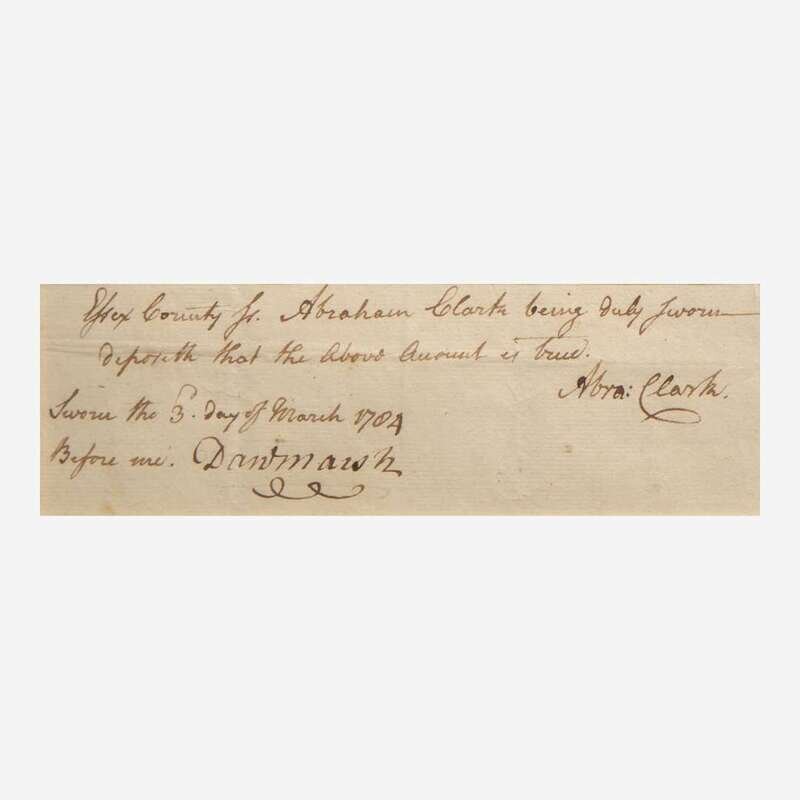 Essex County ss. Abraham Clark being duly sworn
deposeth that the Above Account is true.
Abra: Clark.
Sworn the 3. day of March 1784
Before me. Danl Marsh